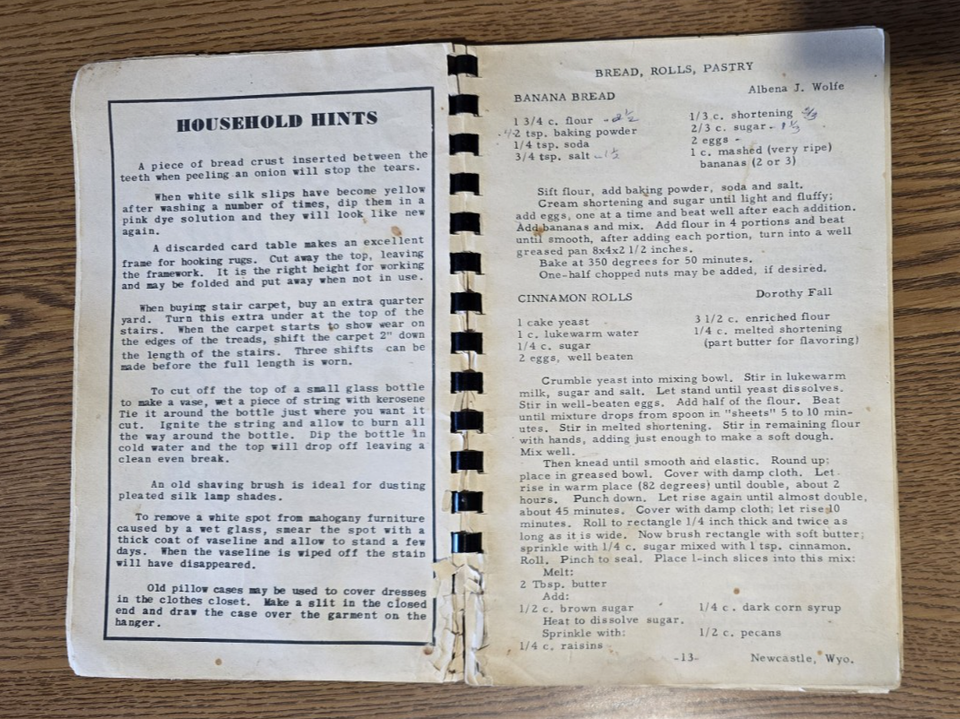 HOUSEHOLD HINTS
A piece of bread crust inserted between the
teeth when peeling an onion will stop the tears.
When white silk slips have become yellow
after washing a number of times, dip them in a
pink dye solution and they will look like new
again.
A discarded card table makes an excellent
frame for hooking rugs. Cut away the top, leaving
the framework. It is the right height for working
and may be folded and put away when not in use.
When buying stair carpet, buy an extra quarter
yard. Turn this extra under at the top of the
stairs. When the carpet starts to show wear on
the edges of the treads, shift the carpet 2" down
the length of the stairs. Three shifts can be
made before the full length is worn.
To cut off the top of a small glass bottle
to make a vase, wet a piece of string with kerosene
Tie it around the bottle just where you want it
cut. Ignite the string and allow to burn all
the way around the bottle. Dip the bottle in
cold water and the top will drop off leaving a
clean even break.
An old shaving brush is ideal for dusting
pleated silk lamp shades.
To remove a white spot from mahogany furniture
caused by a wet glass, smear the spot with a
thick coat of vaseline and allow to stand a few
days. When the vaseline is wiped off the stain
will have disappeared.
Old pillow cases may be used to cover dresses
in the clothes closet. Make a slit in the closed
end and draw the case over the garment on the
hanger.
BREAD, ROLLS, PASTRY
BANANA BREAD Albena J. Wolfe
1 3/4 c. flour 1/3 c. shortening
2 tsp. baking powder 2/3 c. sugar
1/4 tsp. soda 2 eggs -
3/4 tsp. salt 1 c. mashed (very ripe)
bananas (2 or 3)
Sift flour, add baking powder, soda and salt.
Cream shortening and sugar until light and fluffy;
add eggs, one at a time and beat well after each addition.
Add bananas and mix. Add flour in 4 portions and beat
until smooth, after adding each portion, turn into a well
greased pan 8x4x2 1/2 inches.
Bake at 350 degrees for 50 minutes.
One-half chopped nuts may be added, if desired.
CINNAMON ROLLS Dorothy Fall
1 cake yeast 3 1/2 c. enriched flour
1 c. lukewarm water 1/4 c. melted shortening
1/4 c. sugar (part butter for flavoring)
2 eggs, well beaten
Crumble yeast into mixing bowl. Stir in lukewarm
milk, sugar and salt. Let stand until yeast dissolves.
Stir in well-beaten eggs. Add half of the flour. Beat
until mixture drops from spoon in "sheets" 5 to 10 min-
utes. Stir in melted shortening. Stir in remaining flour
with hands, adding just enough to make a soft dough.
Mix well.
Then knead until smooth and elastic. Round up;
place in greased bowl. Cover with damp cloth. Let
rise in warm place (82 degrees) until double, about 2
hours. Punch down. Let rise again until almost double,
about 45 minutes. Cover with damp cloth; let rise 10
minutes. Roll to rectangle 1/4 inch thick and twice as
long as it is wide. Now brush rectangle with soft butter;
sprinkle with 1/4 c. sugar mixed with 1 tsp. cinnamon.
Roll. Pinch to seal. Place 1-inch slices into this mix:
Melt:
2 Tbsp. butter
Add:
1/2 c. brown sugar 1/4 c. dark corn syrup
Heat to dissolve sugar.
Sprinkle with: 1/2 c. pecans
1/4 c. raisins
-13- Newcastle, Wyo.